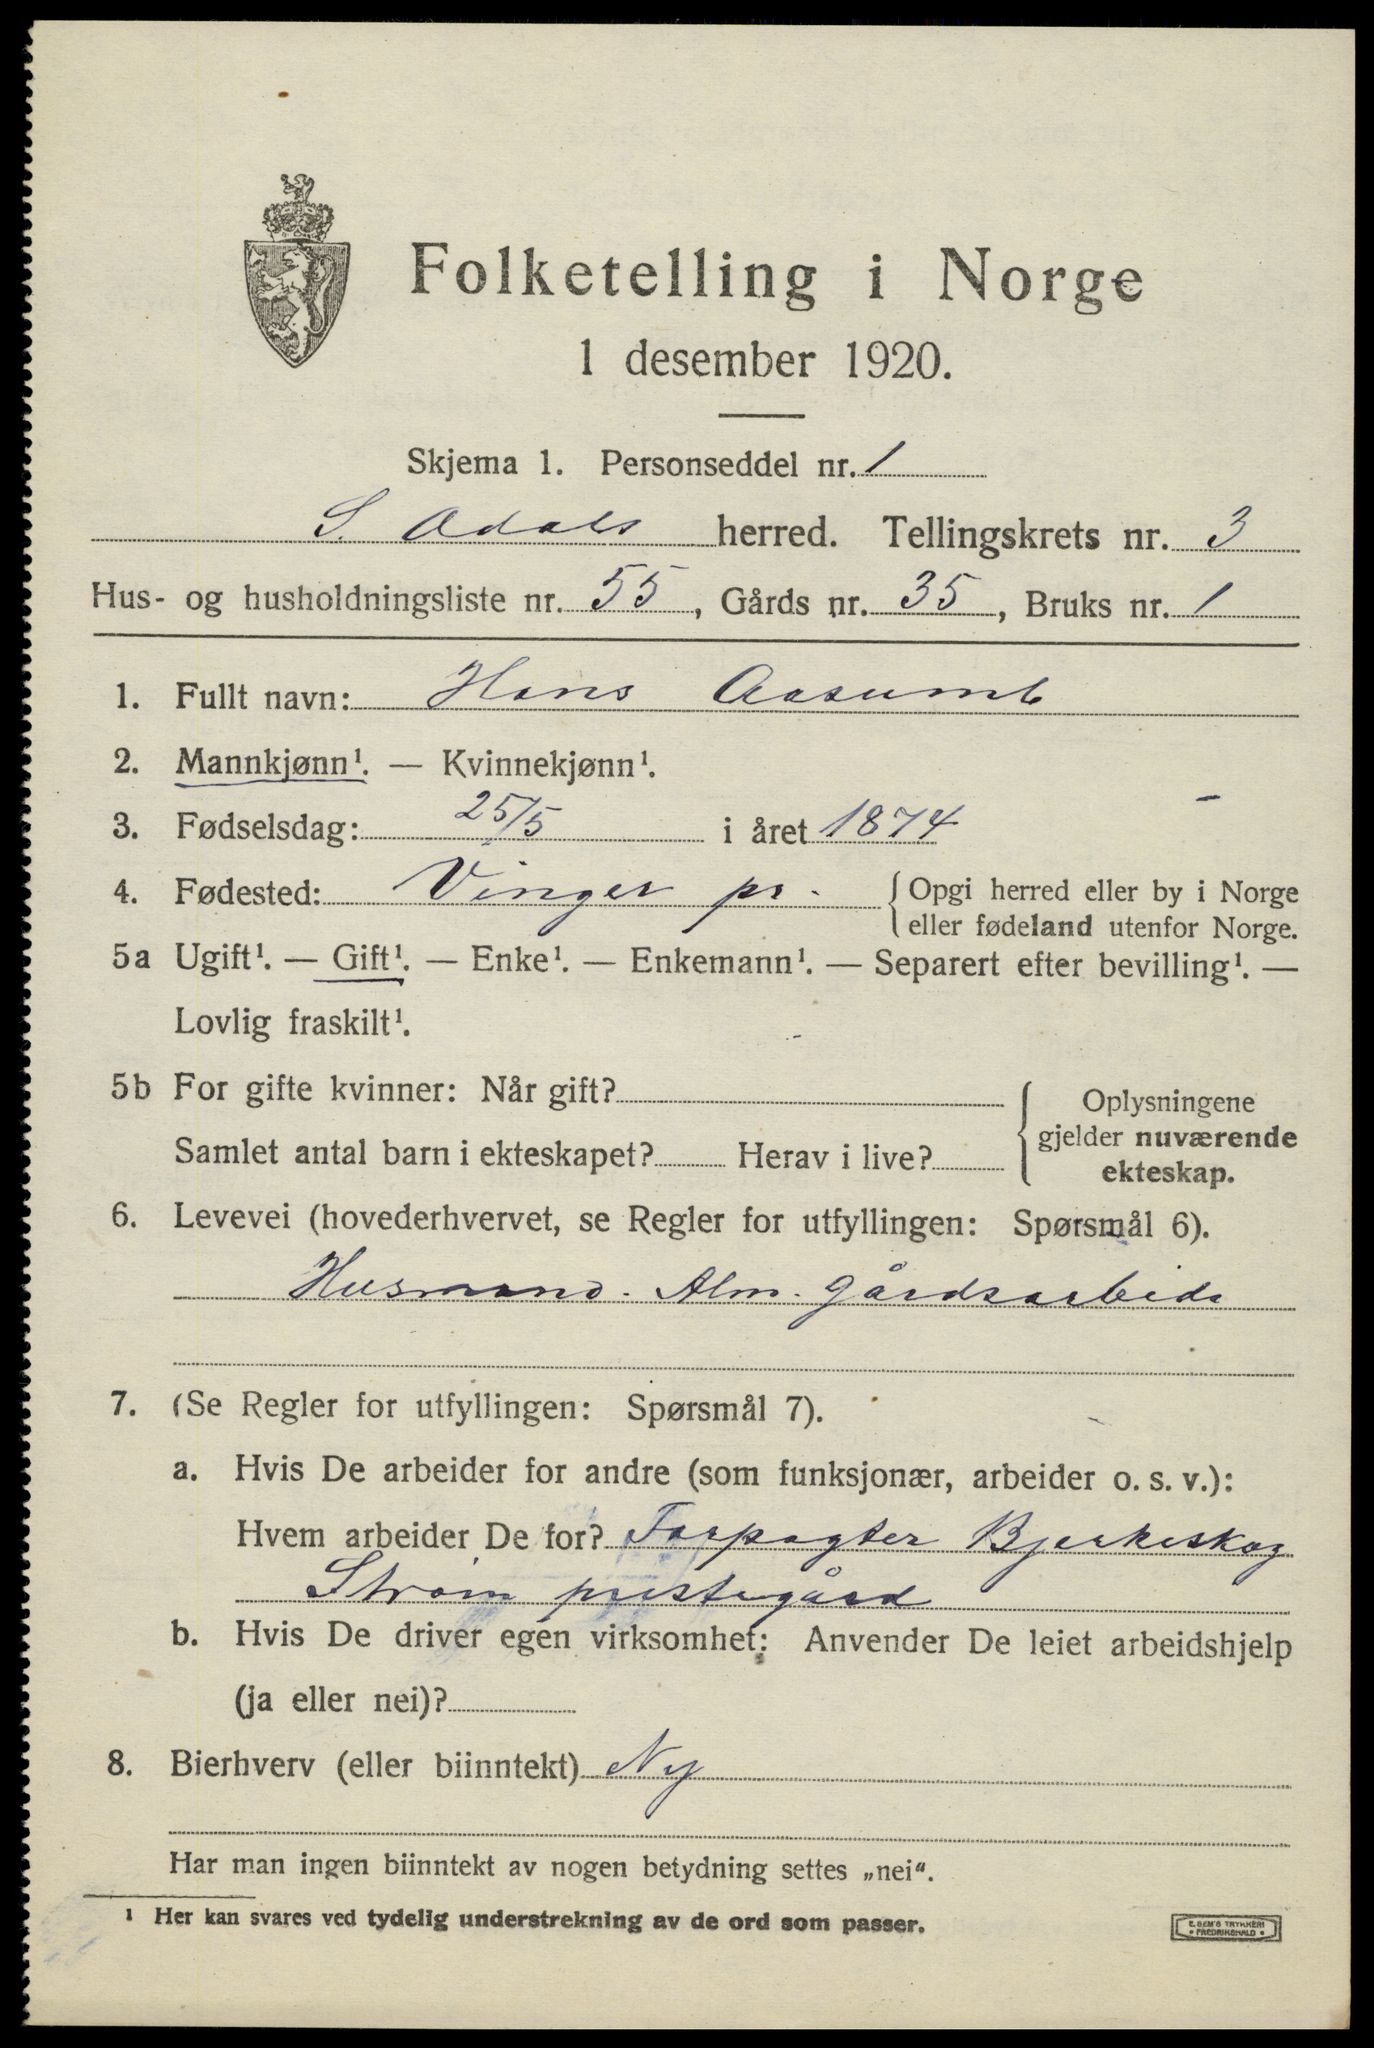 Folketelling i Norge
1 desember 1920.
Skjema 1. Personseddel nr. 1
S. Odals herred. Tellingskrets nr. 3
Hus- og husholdningsliste nr. 55, Gårds nr. 35, Bruks nr. 1
1. Fullt navn: Hans Aasumb
2. Mannkjønn¹. — Kvinnekjønn¹.
3. Fødselsdag: 25/5 i året 1874
4. Fødested: Vinger pr. { Opgi herred eller by i Norge
eller fødeland utenfor Norge.
5a Ugift¹. — Gift¹. — Enke¹. — Enkemann¹. — Separert efter bevilling¹. —
Lovlig fraskilt¹.
5b For gifte kvinner: Når gift?
Samlet antal barn i ekteskapet? Herav i live?
Oplysningene
gjelder nuværende
ekteskap.
6. Levevei (hovederhvervet, se Regler for utfyllingen: Spørsmål 6).
Husmand. Alm. gårdsarbeide
7. (Se Regler for utfyllingen: Spørsmål 7).
a. Hvis De arbeider for andre (som funksjonær, arbeider o. s. v.):
Hvem arbeider De for? Forpagter Bjerkeskog
Strøm prestegård
b. Hvis De driver egen virksomhet: Anvender De leiet arbeidshjelp
(ja eller nei)?
8. Bierhverv (eller biinntekt) Ny
Har man ingen biinntekt av nogen betydning settes „nei“.
¹ Her kan svares ved tydelig understrekning av de ord som passer.
E. SEM'S TRYKKERI
• FREDRIKSHALD •